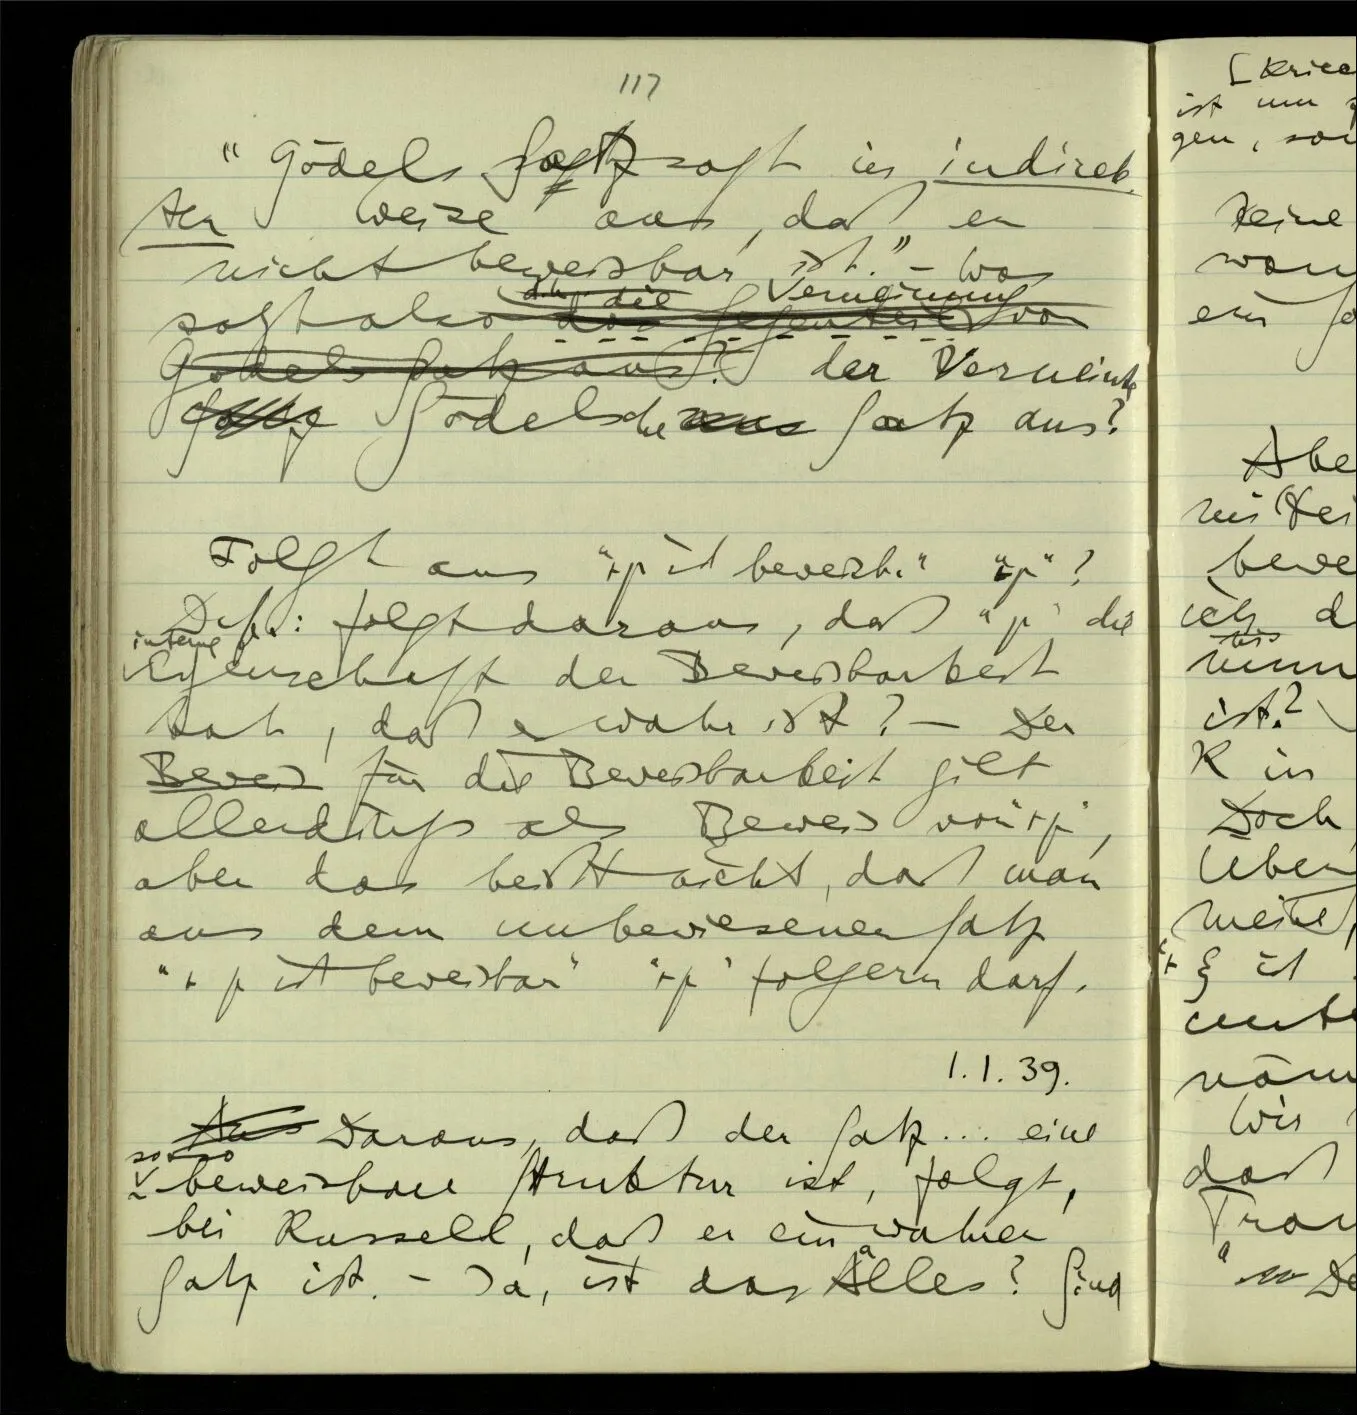 117
"Gödels Satz sagt in indirek-
ter Weise aus, daß er
nicht beweisbar ist." – Was
d.h. die Verneinung
sagt also das Gegenteil von
Gödels Satz aus? der Verneinte
Gödelsche Satz aus?
Folgt aus "⊢p ist beweisb." "⊢p"?
D.h.: folgt daraus, daß "p" die
interne
Eigenschaft der Beweisbarkeit
hat, daß er wahr ist? – Der
Beweis für die Beweisbarkeit gilt
allerdings als Beweis von "⊢p",
aber das heißt nicht, daß man
aus dem unbewiesenen Satz
"⊢p ist beweisbar" "⊢p" folgern darf.
1.1.39.
Aus Daraus, daß der Satz... eine
so & so
beweisbare Struktur ist, folgt,
bei Russell, daß er ein wahrer
Satz ist. – Ja, ist das alles? Sind
[Kriee
ist um
gen, son
keine
wan
ein
Abe
mittei
bewe
ich d
bis
nun
ist?
R in
Doch
Über
meine
ist
unte
näm
Wir
daß
Tra
De